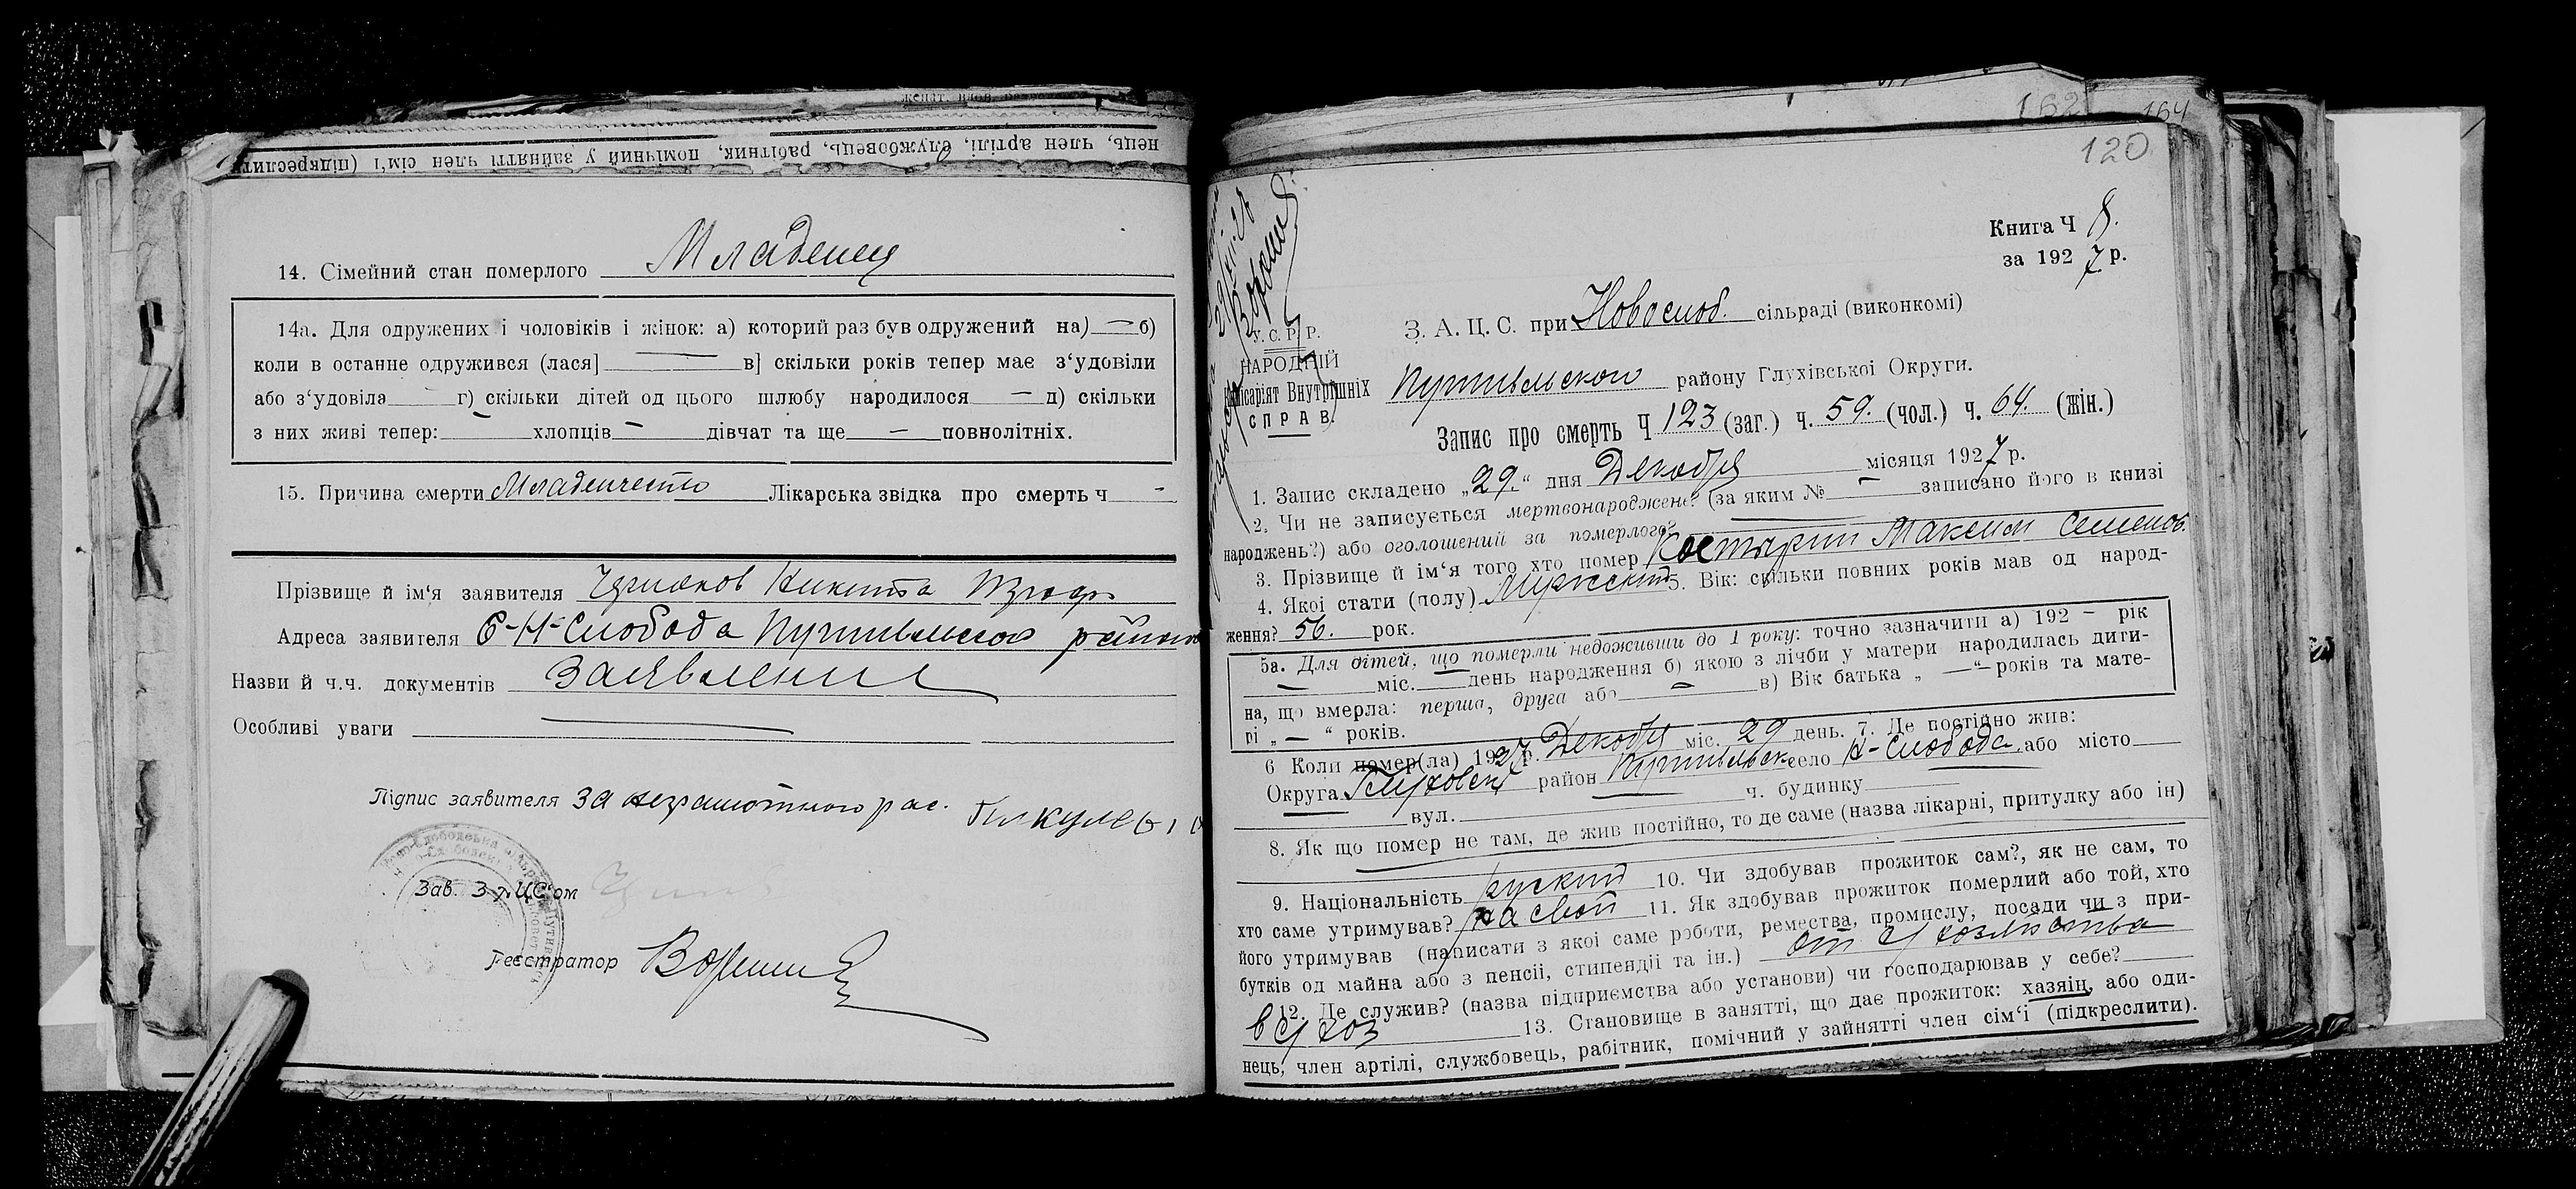 нець, член артілі, службовець, рабітник, помічний у зайнятті член сім‘ї (підкреслити
14. Сімейний стан померлого Младенец
14а. Для одружених і чоловіків і жінок: а) которий раз був одружений на) — б)
коли в останнє одружився (лася] — в] скільки років тепер має з‘удовіли
або з‘удовіла — г) скільки дітей од цього шлюбу народилося — д) скільки
з них живі тепер: — хлопців — дівчат та ще — повнолітніх.
15. Причина смерти Младенчество Лікарська звідка про смерть ч —
Прізвище й ім‘я заявителя Никита
Адреса заявителя С-Н-Слобода Путивльского района
Назви й ч.ч. документів Заявление
Особливі уваги —
Підпис заявителя За неграмотного рас.
Зав. ЗАЦС‘ом
Реєстратор
162 164
120
Книга Ч 8.
за 1927 р.
У. С. Р. Р.
НАРОДНІЙ
Комісаріят Внутрішніх
СПРАВ.
З. А. Ц. С. при Новослоб. сільраді (виконкомі)
Путивльского району Глухівської Округи.
Запис про смерть Ч 123 (заг.) ч. 59. (чол.) ч. 64. (жін.)
1. Запис складено „29.“ дня Декабря місяця 1927 р.
2. Чи не записується мертвонароджене? (за яким № — записано його в книзі
народжень?) або оголошений за померлого?
3. Прізвище й ім‘я того хто помер Костырин Максим Семенов.
4. Якої стати (полу) Мужский 5. Вік: скільки повних років мав од народ-
ження? 56. рок.
5а. Для дітей, що померли недоживши до 1 року: точно зазначити а) 192 — рік
— міс. — день народження б) якою з лічби у матери народилась дити-
на, що вмерла: перша, друга або — в) Вік батька „ — “ років та мате-
рі „ — “ років.
6 Коли помер(ла) 1927 р. Декабря міс. 29 день. 7. Де постійно жив:
Округа Глуховский район Путивльск село Н-Слобода або місто
вул. ч. будинку
8. Як що помер не там, де жив постійно, то де саме (назва лікарні, притулку або ін)
9. Національність руский 10. Чи здобував прожиток сам?, як не сам, то
хто саме утримував? на свой 11. Як здобував прожиток померлий або той, хто
його утримував (написати з якої саме роботи, ремества, промислу, посади чи з при-
бутків од майна або з пенсії, стипендії та ін.) от с/хозяйства
12. Де служив? (назва підприємства або установи) чи господарював у себе?
в с/хоз 13. Становище в занятті, що дає прожиток: хазяїн, або оди-
нець, член артілі, службовець, рабітник, помічний у зайнятті член сім‘ї (підкреслити).